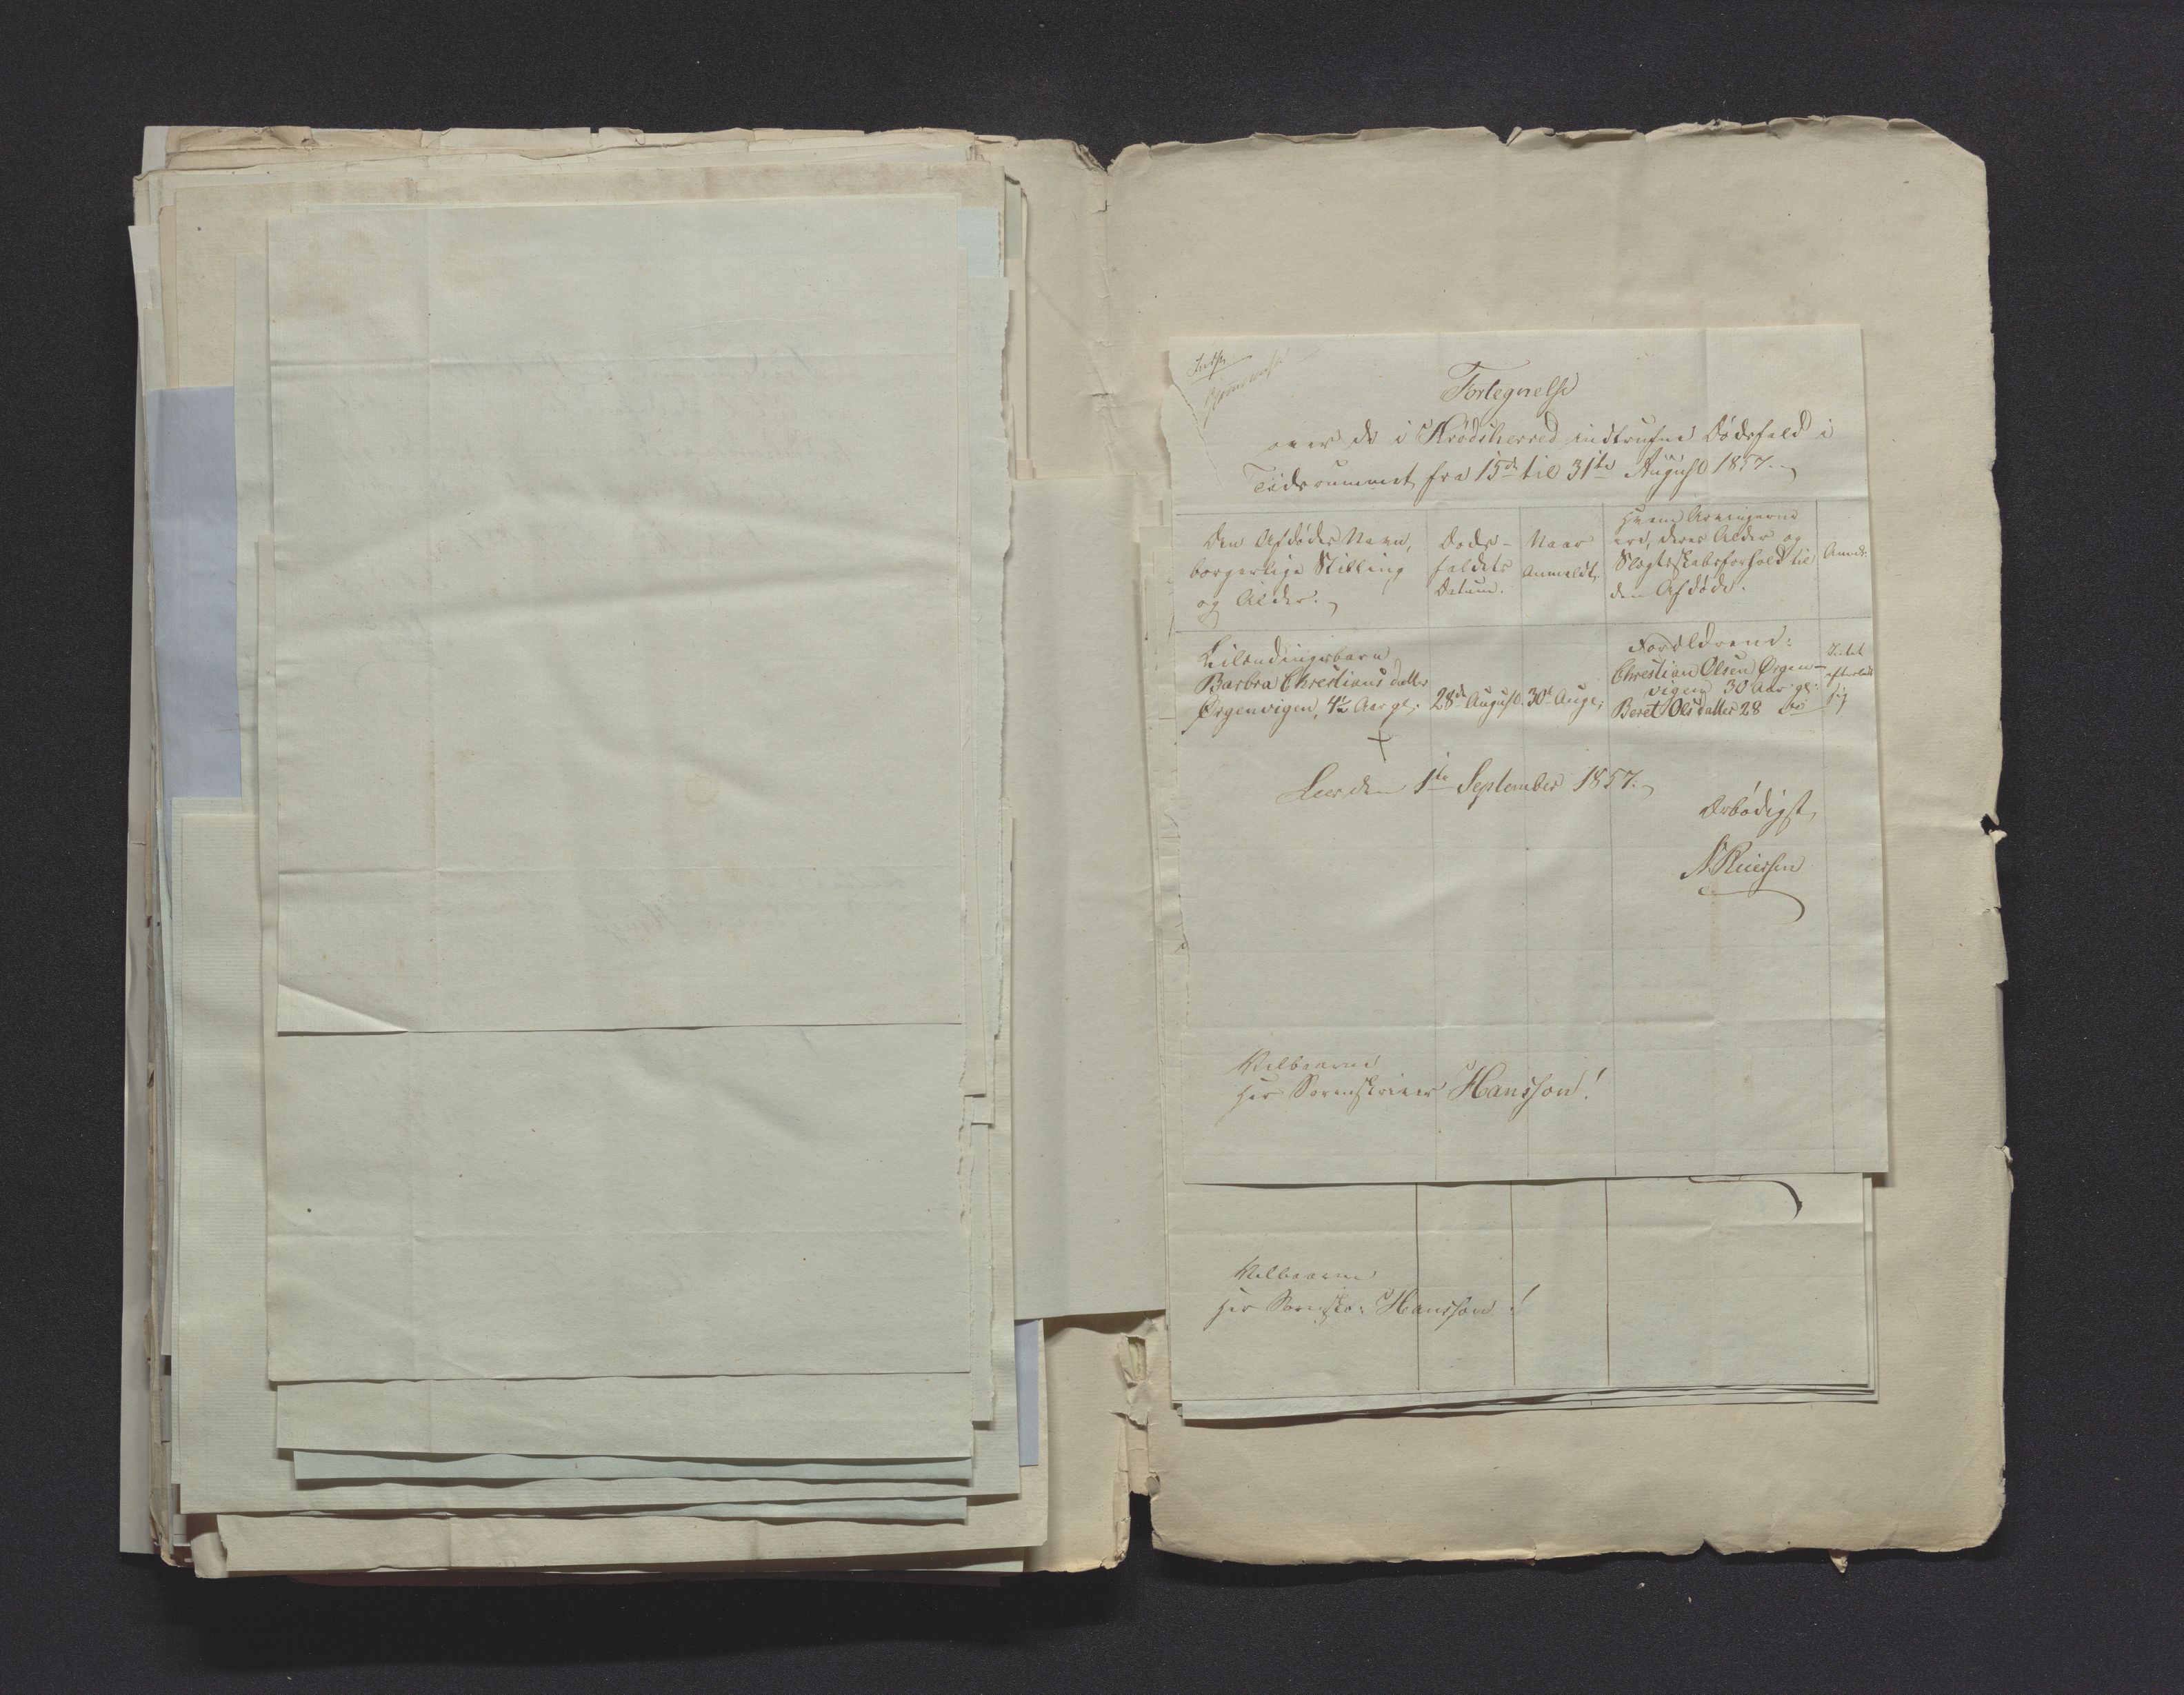 Fortegnelse
over de i Krødsherred indtrufne Dødsfald i
Tidsrummet fra 15de til 31te August 1857.
Den Afdødes Navn,
borgerlige Stilling
og Alder.
Døds-
faldets
Datum.
Naar
Anmeldt.
Hvem Arvingerne
ere, deres Alder og
Slægtsskabsforhold til
den Afdøde.
Anm:
Leilændingsbarn
Barbra Christiansdatter
Ørgenvigen, 4½ Aar gl.
28de August.
30te Aug.
Forældrene:
Christian Olsen Ørgen-
vigen 30 Aar gl:
Beret Olsdatter 28 do
Intet
efterladt
sig
Leer den 1te September 1857.
Ærbødigst,
Velbaarne
Hr Sorenskriver Hansson!
Velbaarne
Hr Sorenskr: Hansson!